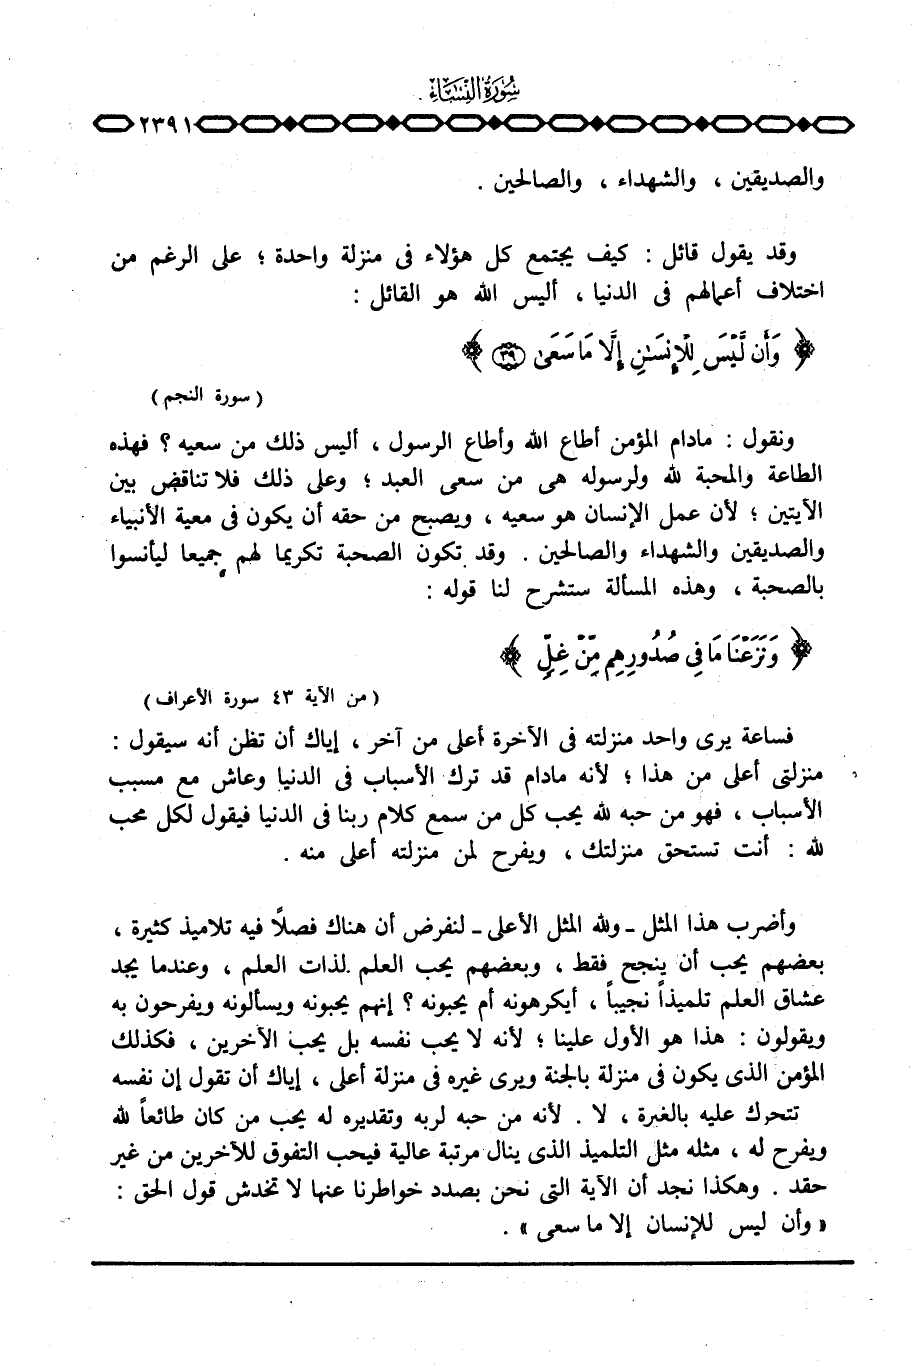 سُورَةُ النِّسَاءِ
٢٣٩١
والصديقين ، والشهداء ، والصالحين .
وقد يقول قائل : كيف يجتمع كل هؤلاء فى منزلة واحدة ؛ على الرغم من
اختلاف أعمالهم فى الدنيا ، أليس الله هو القائل :
﴿ وَأَن لَّيْسَ لِلْإِنسَٰنِ إِلَّا مَا سَعَىٰ ٣٩ ﴾
( سورة النجم )
ونقول : مادام المؤمن أطاع الله وأطاع الرسول ، أليس ذلك من سعيه ؟ فهذه
الطاعة والمحبة لله ولرسوله هى من سعى العبد ؛ وعلى ذلك فلا تناقض بين
الآيتين ؛ لأن عمل الإنسان هو سعيه ، ويصبح من حقه أن يكون فى معية الأنبياء
والصديقين والشهداء والصالحين . وقد تكون الصحبة تكريما لهم جميعا ليأنسوا
بالصحبة ، وهذه المسألة ستشرح لنا قوله :
﴿ وَنَزَعْنَا مَا فِى صُدُورِهِم مِّنْ غِلٍّ ﴾
( من الآية ٤٣ سورة الأعراف )
فساعة يرى واحد منزلته فى الآخرة أعلى من آخر ، إياك أن تظن أنه سيقول :
منزلتى أعلى من هذا ؛ لأنه مادام قد ترك الأسباب فى الدنيا وعاش مع مسبب
الأسباب ، فهو من حبه لله يحب كل من سمع كلام ربنا فى الدنيا فيقول لكل محب
لله : أنت تستحق منزلتك ، ويفرح لمن منزلته أعلى منه .
وأضرب هذا المثل ـ ولله المثل الأعلى ـ لنفرض أن هناك فصلاً فيه تلاميذ كثيرة ،
بعضهم يحب أن ينجح فقط ، وبعضهم يحب العلم لذات العلم ، وعندما يجد
عشاق العلم تلميذاً نجيباً ، أيكرهونه أم يحبونه ؟ إنهم يحبونه ويسألونه ويفرحون به
ويقولون : هذا هو الأول علينا ؛ لأنه لا يحب نفسه بل يحب الآخرين ، فكذلك
المؤمن الذى يكون فى منزلة بالجنة ويرى غيره فى منزلة أعلى ، إياك أن تقول إن نفسه
تتحرك عليه بالغيرة ، لا . لأنه من حبه لربه وتقديره له يحب من كان طائعاً لله
ويفرح له ، مثله مثل التلميذ الذى ينال مرتبة عالية فيحب التفوق للآخرين من غير
حقد . وهكذا نجد أن الآية التى نحن بصدد خواطرنا عنها لا تخدش قول الحق :
« وأن ليس للإنسان إلا ما سعى » .